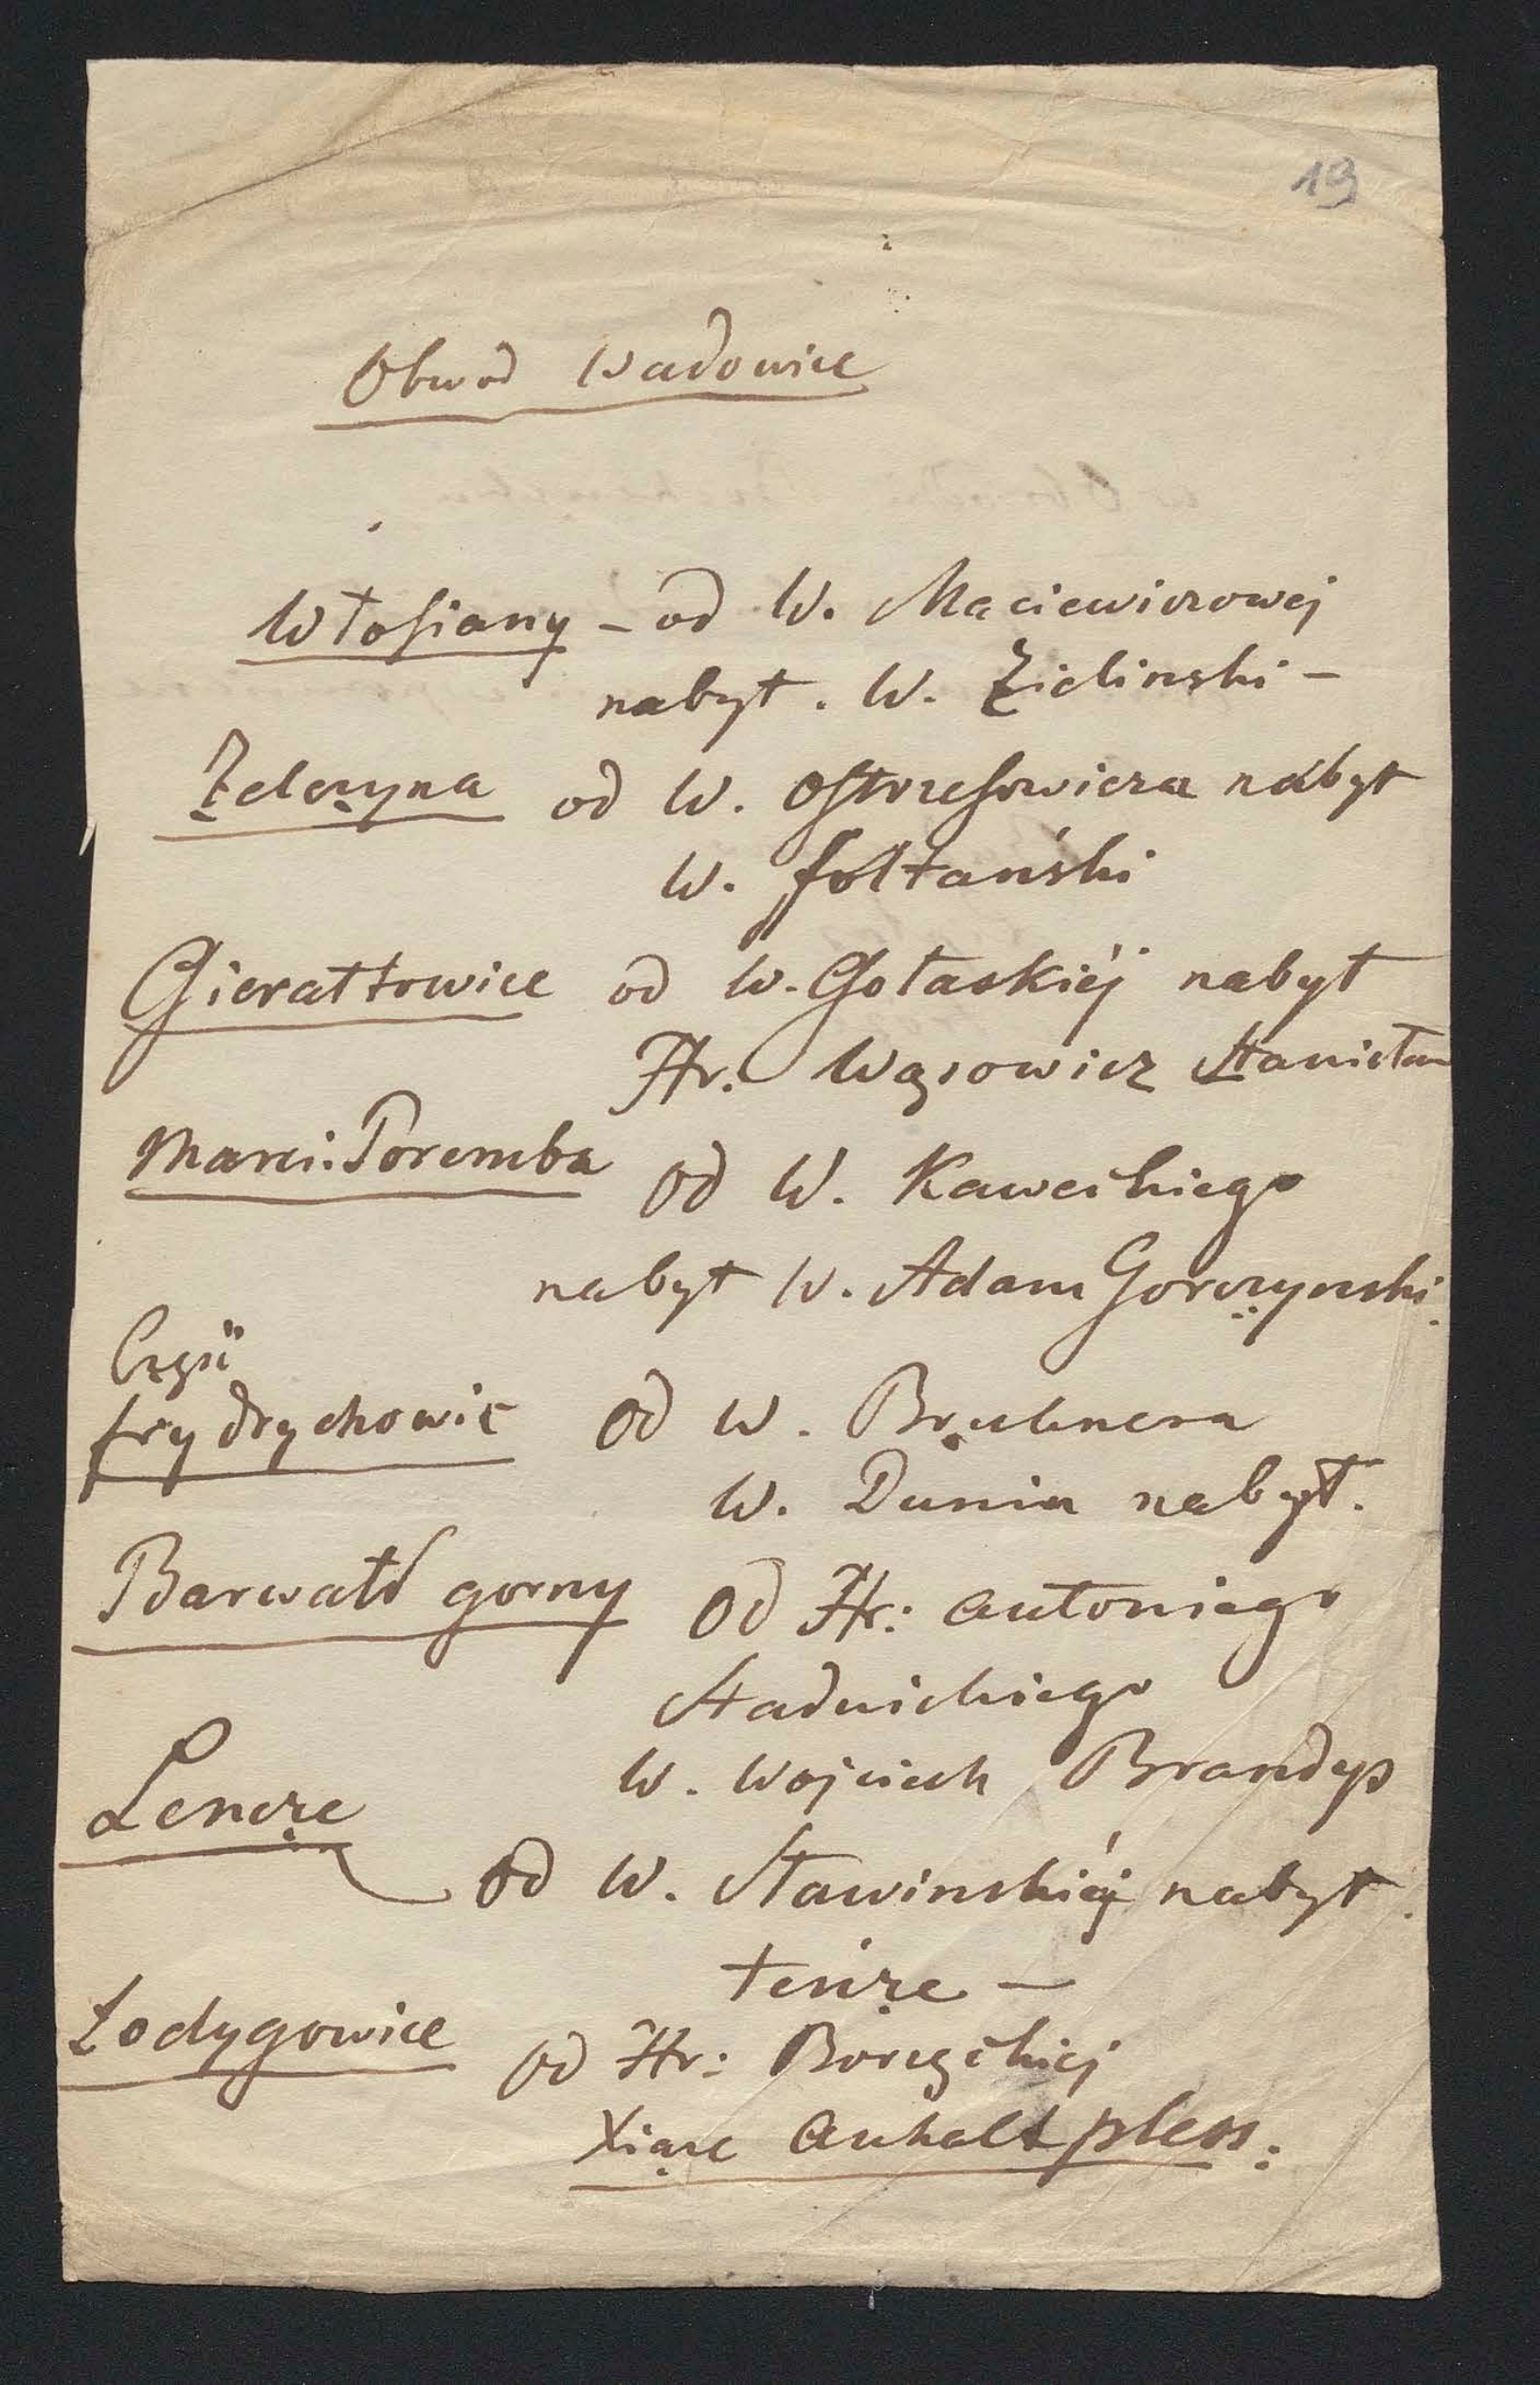 19
Obwod Wadowice
Włosiany – od W. Maciewiczowej
nabył. W. Zielinski –
Zelczyna od W. Ostrzeszowicza nabył
W. Fołtański
Gierałtowice od W. Gołaskiéj nabył
Hr. Wąsowicz Stanisław
Marci. Poremba od W. Kaweckiego
nabył W. Adam Gorczynski
Część
frydrychowic od W. Brulnera
W. Dunin nabył.
Barwałd gorny od Hr: Antoniego
Stadnickiego
W. Wojciech Brandys
Lencze
od W. Sławinskiéj nabył
tenże –
Łodygowice od Hr: Borzęckiej
Xiąże Anhalt pless.